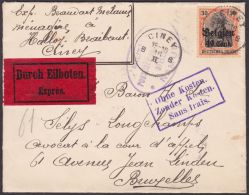 Exp. Beaudart Mélanie
ménagère à
Halloy, Braibant
Ciney
CINEY
30
Belgien
Durch Eilboten.
Exprès.
Ohne Kosten.
Zonder Kosten.
Sans frais.
Selys-Longchamps
Avocat à la cour
d'appel
6 Avenue Jean Linden
Bruxelles